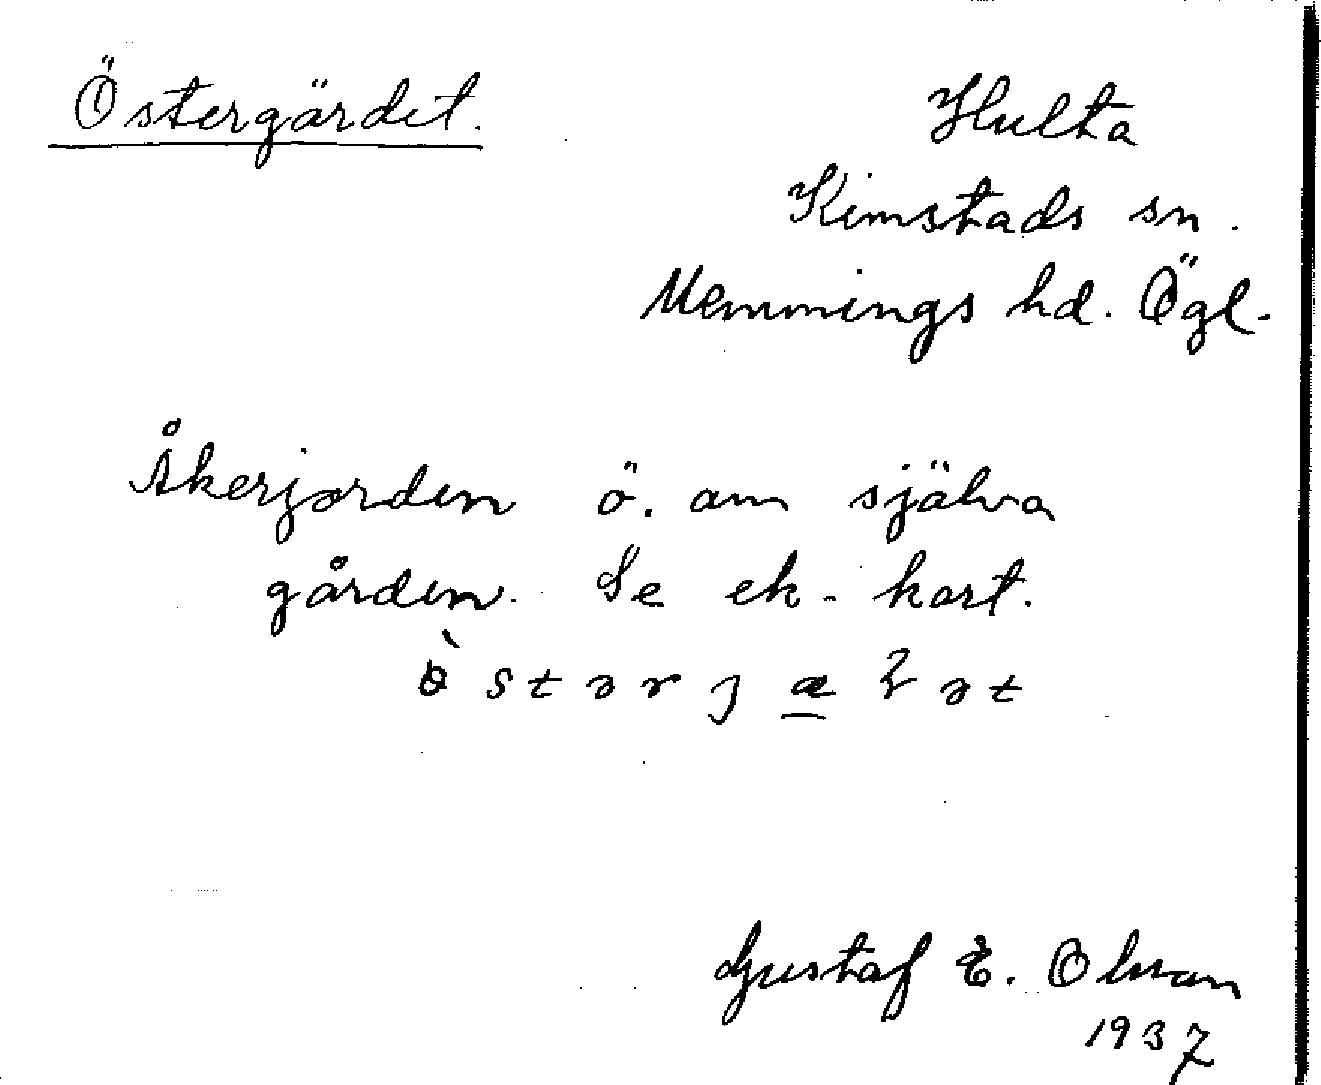 Östergärdet.
Hulta
Kimstads sn.
Memmings hd. Ögl.
Åkerjorden ö. om själva
gården. Se ek. kart.
ὸstərjæ̲ꝛət
Gustaf E. Olsson
1937